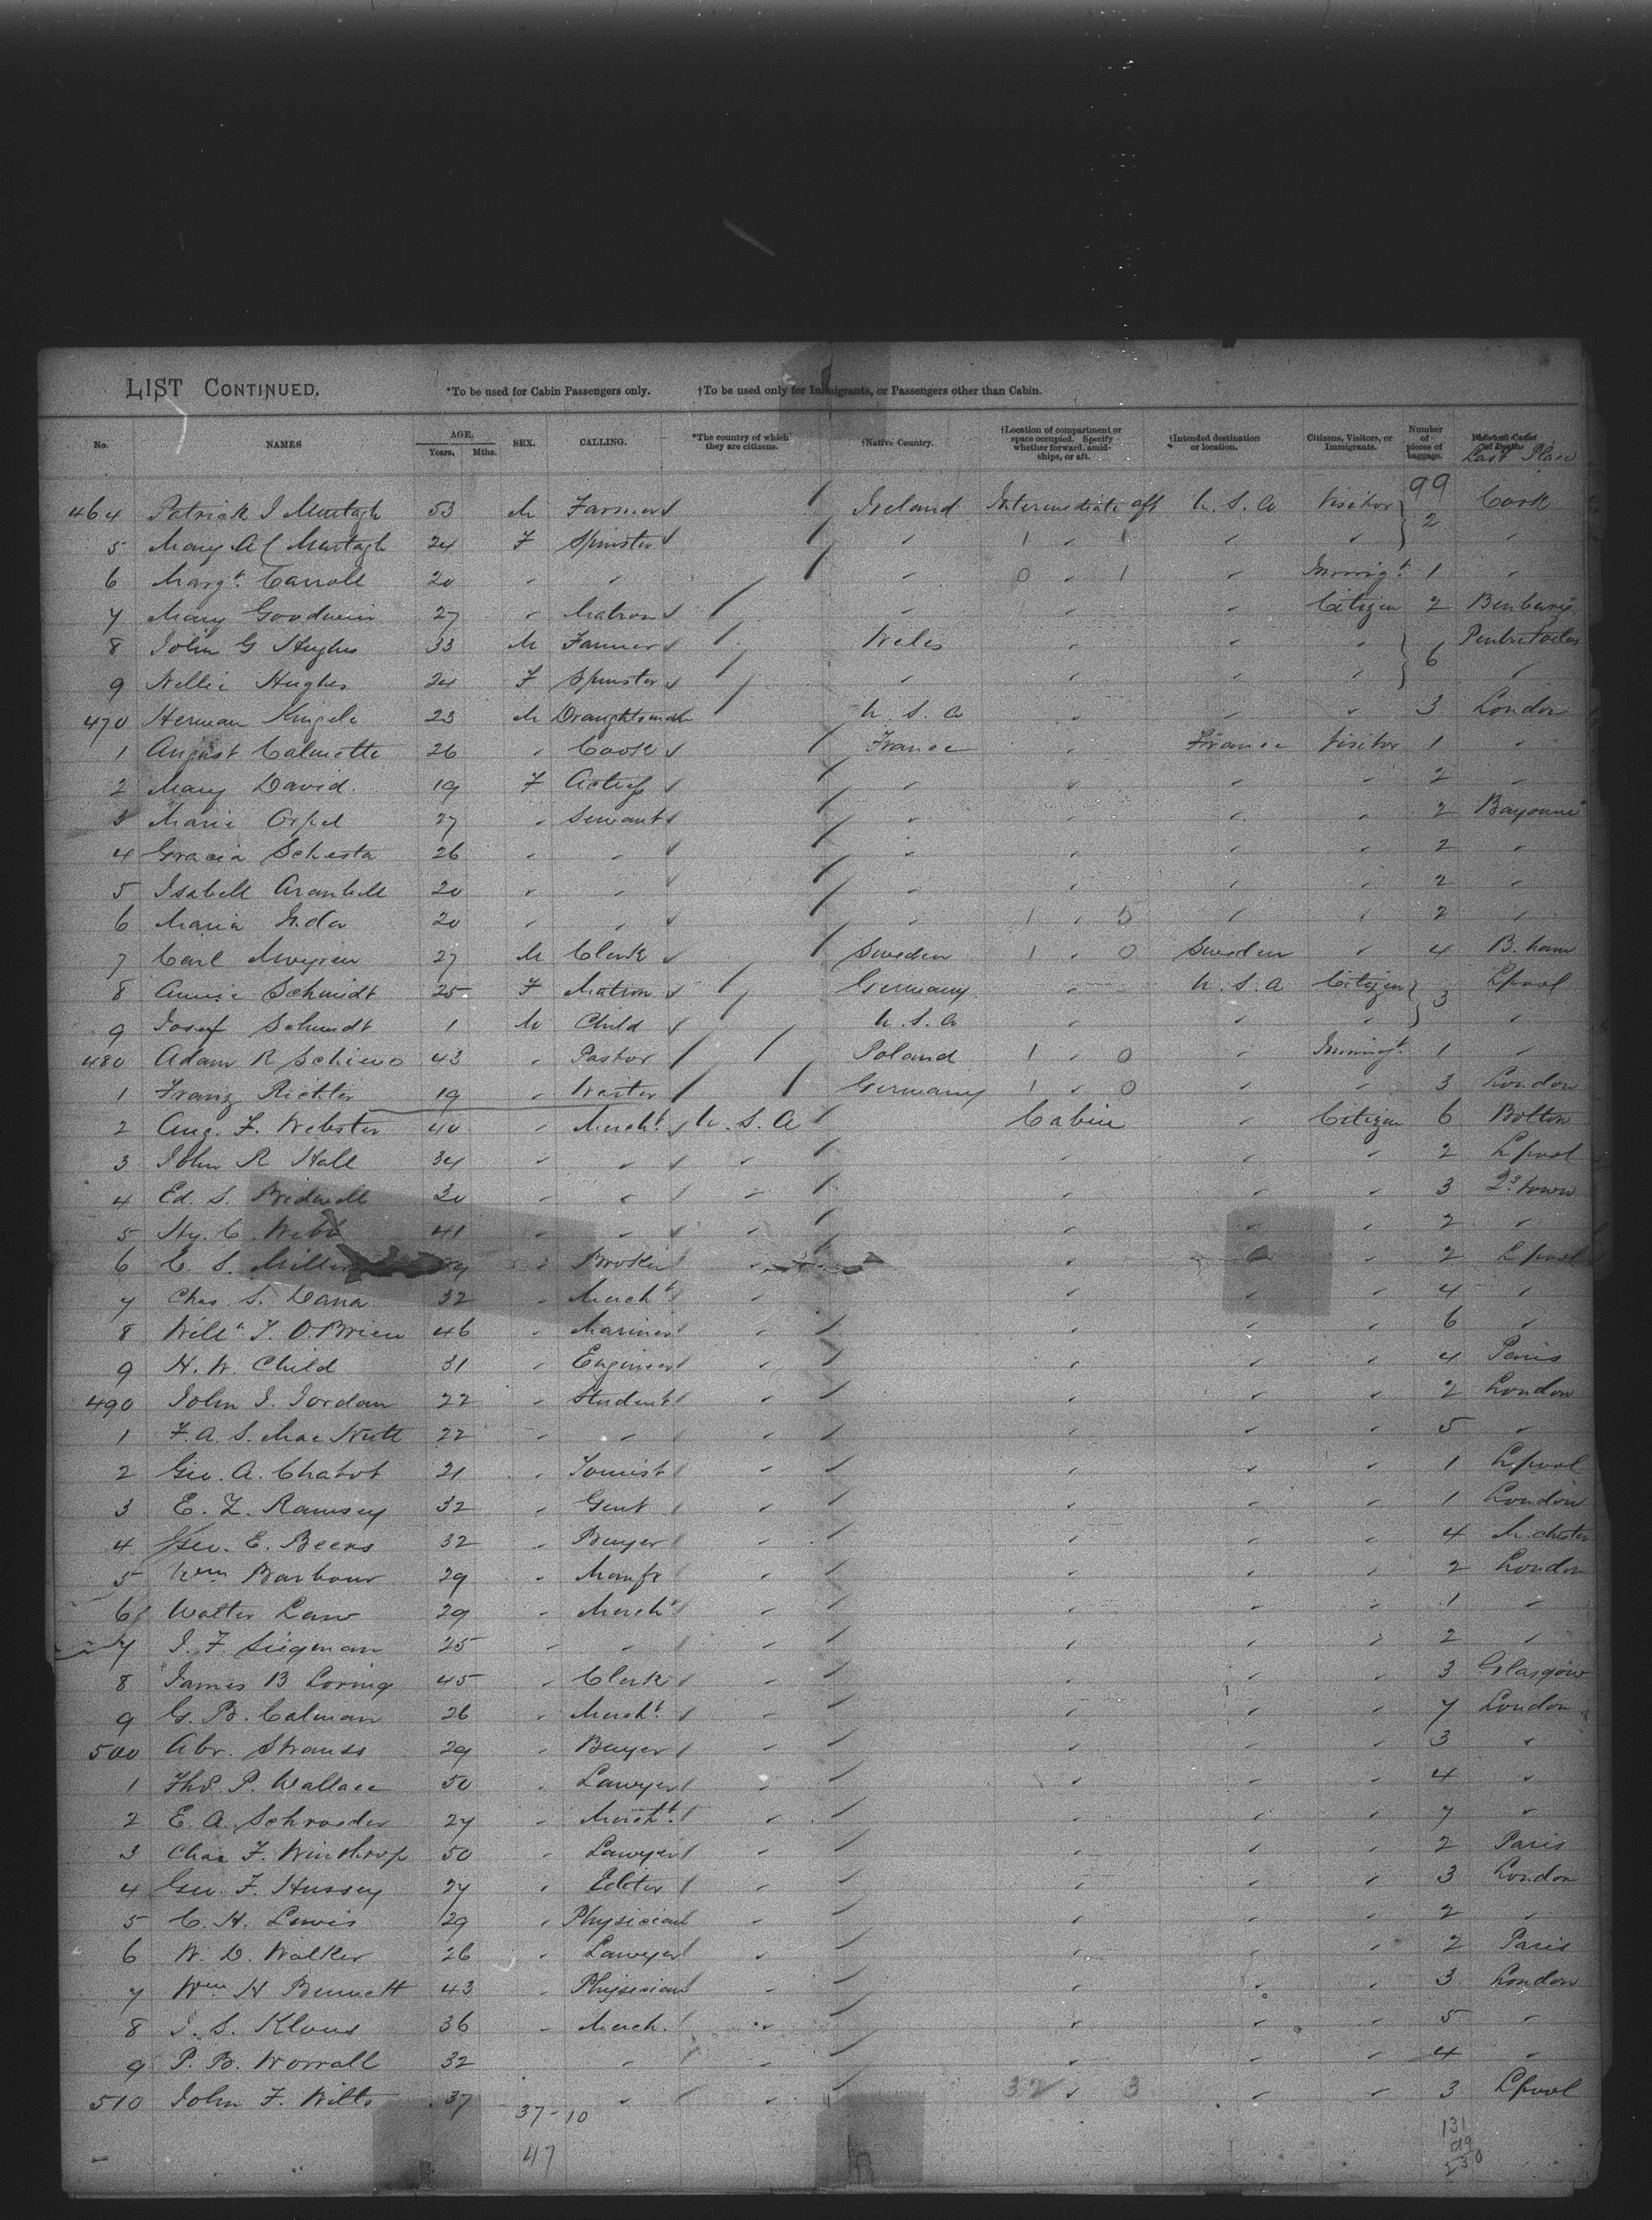 LIST CONTINUED. *To be used for Cabin Passengers only. †To be used only for Immigrants, or Passengers other than Cabin.
No. NAMES AGE. Years. Mths. SEX. CALLING. *The country of which they are citizens. †Native Country. †Location of compartment or space occupied. Specify whether forward, amidships, or aft. †Intended destination or location. Citizens, Visitors, or Immigrants. Number of pieces of baggage. Last Place
99
464 Patrick J Murtagh 53 M Farmer Ireland Intermediate aft U.S.A Visitor 2 Cork
5 Mary A Murtagh 24 F Spinster " 1 " 1 " " "
6 Margt. Carroll 20 " " " 0 " 1 " Immigt. 1 "
7 Mary Goodwin 27 " Matron " " " Citizen 2
8 John G Hughes 33 M Farmer Wales " " " 6
9 Nellie Hughes 24 F Spinster " " " " "
470 Herman 23 M Draughtsman U.S.A " " " 3 London
1 August Calmette 26 " Cook France " France Visitor 1 "
2 Mary David 19 F Actress " " " " 2 "
3 Marie 27 " Servant " " " " 2 Bayonne
4 Gracia 26 " " " " " " 2 "
5 Isabell 20 " " " " " " 2 "
6 Maria 20 " " " 1 " 5 " " 2 "
7 Carl 27 M Clerk Sweden 1 " 0 Sweden " 4 B.ham
8 Annie Schmidt 25 F Matron Germany " U.S.A Citizen 3 Lpool
9 Josef Schmidt 1 M Child U.S.A " " " "
480 Adam R 43 " Pastor Poland 1 " 0 " Immigt. 1 "
1 Franz Richter 19 " Waiter Germany 1 " 0 " " 3 London
2 Aug. F. Webster 40 " Mercht. U.S.A Cabin " Citizen 6 Bolton
3 John R Hall 34 " " " " " " 2 Lpool
4 Ed. S. Bidwell 30 " " " " " " 3 Qs.town
5 Hy. C. Webb 41 " " " " " " 2 "
6 C. S. " Broker " " " 2 Lpool
7 Chas. S. Dana 32 " Mercht " " " " 4 "
8 Willm J. O'Brien 46 " Mariner " " " " 6 "
9 H. W. Child 31 " Engineer " " " " 4 Paris
490 John J. Jordan 22 " Student " " " " 2 London
1 F. A. S. MacNutt 22 " " " " " " 5 "
2 Geo. A. Chabot 21 " Tourist " " " " 1 Lpool
3 E. L. Ramsey 32 " Gent " " " " 1 London
4 Geo. E. Beers 32 " Buyer " " " " 4 M.chester
5 Wm Barbour 29 " Manfr " " " " 2 London
6 Walter Law 29 " Mercht " " " " 1 "
7 J. F. Siegman 25 " " " " " " 2 "
8 James B Loring 45 " Clerk " " " " 3 Glasgow
9 G. B. Calman 26 " Mercht. " " " " 7 London
500 Abr. Strauss 29 " Buyer " " " " 3 "
1 Thos. P. Wallace 50 " Lawyer " " " " 4 "
2 E. A. Schroeder 27 " Mercht. " " " " 7 "
3 Chas F. Winthrop 50 " Lawyer " " " " 2 Paris
4 Geo. F. Hussey 27 " Editor " " " " 3 London
5 C. H. Lewis 29 " Physician " " " " 2 "
6 W. D. Walker 26 " Lawyer " " " " 2 Paris
7 Wm H Bennett 43 " Physician " " " 3 London
8 J. S. Klous 36 " Merch. " " " " 5 "
9 P. B. Worrall 32 " " " " " 4 "
510 John F. Wilts 37 " " 32 " 3 " " 3 Lpool
37-10
47
131
99
230